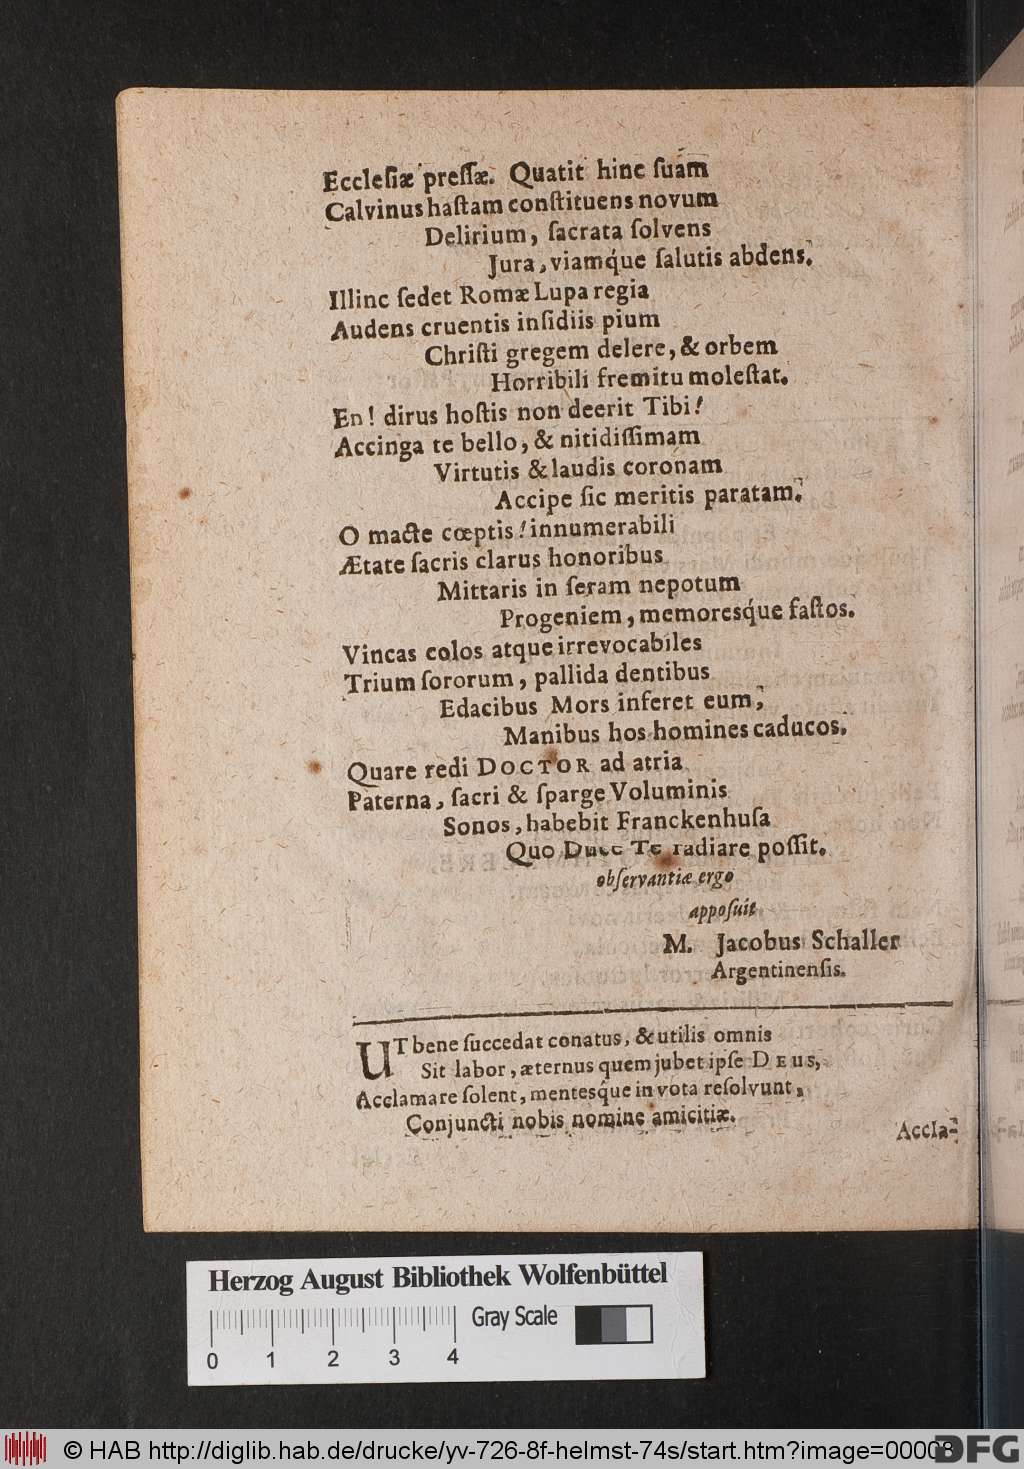 Ecclesiæ pressæ. Quatit hinc suam
Calvinus hastam constituens novum
Delirium, sacrata solvens
Jura, viamq́ue salutis abdens.
Illinc sedet Romæ Lupa regia
Audens cruentis insidiis pium
Christi gregem delere, & orbem
Horribili fremitu molestat.
En! dirus hostis non deerit Tibi!
Accinga te bello, & nitidissimam
Virtutis & laudis coronam
Accipe sic meritis paratam.
O macte cœptis! innumerabili
Ætate sacris clarus honoribus
Mittaris in seram nepotum
Progeniem, memoresq́ue fastos.
Vincas colos atque irrevocabiles
Trium sororum, pallida dentibus
Edacibus Mors inferet eum,
Manibus hos homines caducos.
Quare redi DOCTOR ad atria
Paterna, sacri & sparge Voluminis
Sonos, habebit Franckenhusa
Quo Duce Te radiare possit.
observantiæ ergo
apposuit
M. Jacobus Schaller
Argentinensis.
UT bene succedat conatus, & utilis omnis
Sit labor, æternus quem jubet ipse DEUS,
Acclamare solent, mentesq́ue in vota resolvunt,
Conjuncti nobis nomine amicitiæ.
Accla-
Herzog August Bibliothek Wolfenbüttel
Gray Scale
0 1 2 3 4
© HAB http://diglib.hab.de/drucke/yv-726-8f-helmst-74s/start.htm?image=00008
DFG